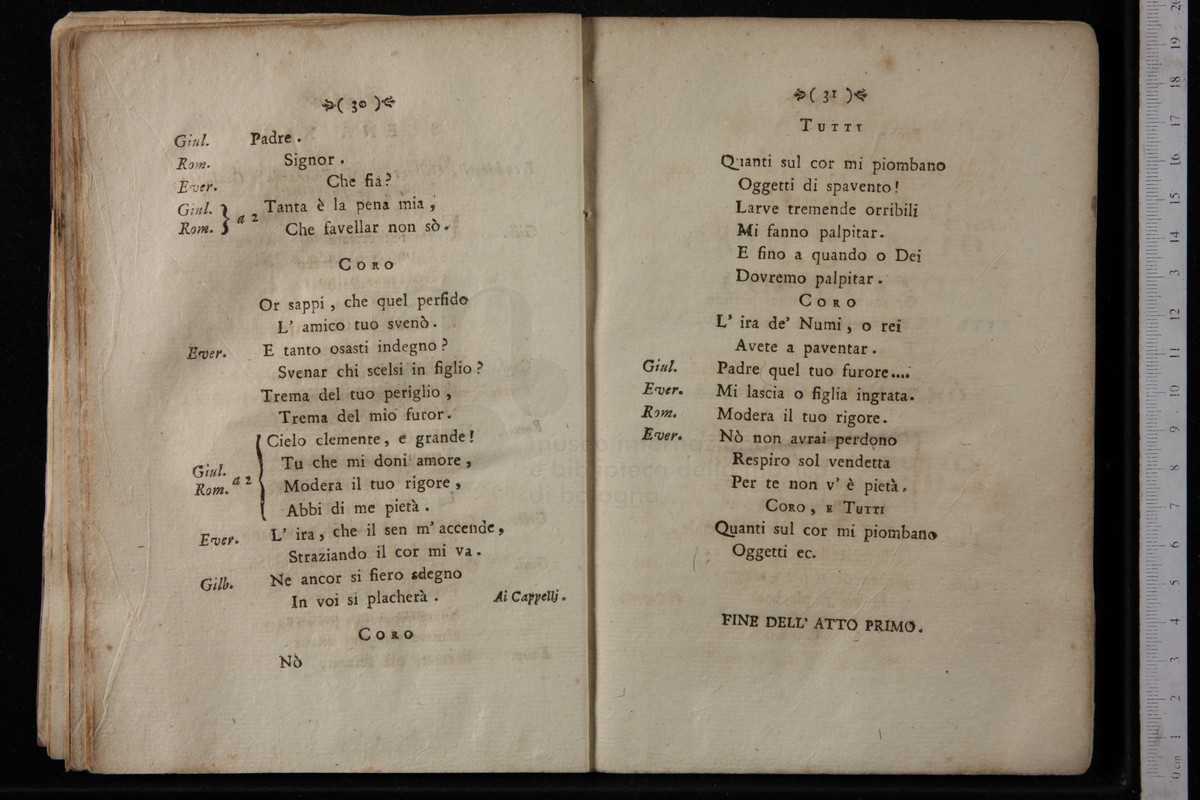 ( 30 )
Giul. Padre .
Rom. Signor .
Ever. Che fia ?
Giul. Rom. a 2 Tanta è la pena mia ,
Che favellar non sò .
CORO
Or sappi , che quel perfido
L' amico tuo svenò .
Ever. E tanto osasti indegno ?
Svenar chi scelsi in figlio ?
Trema del tuo periglio ,
Trema del mio furor .
Giul. Rom. a 2 Cielo clemente , e grande !
Tu che mi doni amore ,
Modera il tuo rigore ,
Abbi di me pietà .
Ever. L' ira , che il sen m' accende ,
Straziando il cor mi va .
Gilb. Ne ancor si fiero sdegno
In voi si placherà . Ai Cappellj .
CORO
Nò
( 31 )
TUTTI
Quanti sul cor mi piombano
Oggetti di spavento !
Larve tremende orribili
Mi fanno palpitar .
E fino a quando o Dei
Dovremo palpitar .
CORO
L' ira de' Numi , o rei
Avete a paventar .
Giul. Padre quel tuo furore....
Ever. Mi lascia o figlia ingrata .
Rom. Modera il tuo rigore .
Ever. Nò non avrai perdono
Respiro sol vendetta
Per te non v' è pietà .
CORO , E TUTTI
Quanti sul cor mi piombano
Oggetti ec.
FINE DELL' ATTO PRIMO .
museo internaz
e biblioteca della
di bologna